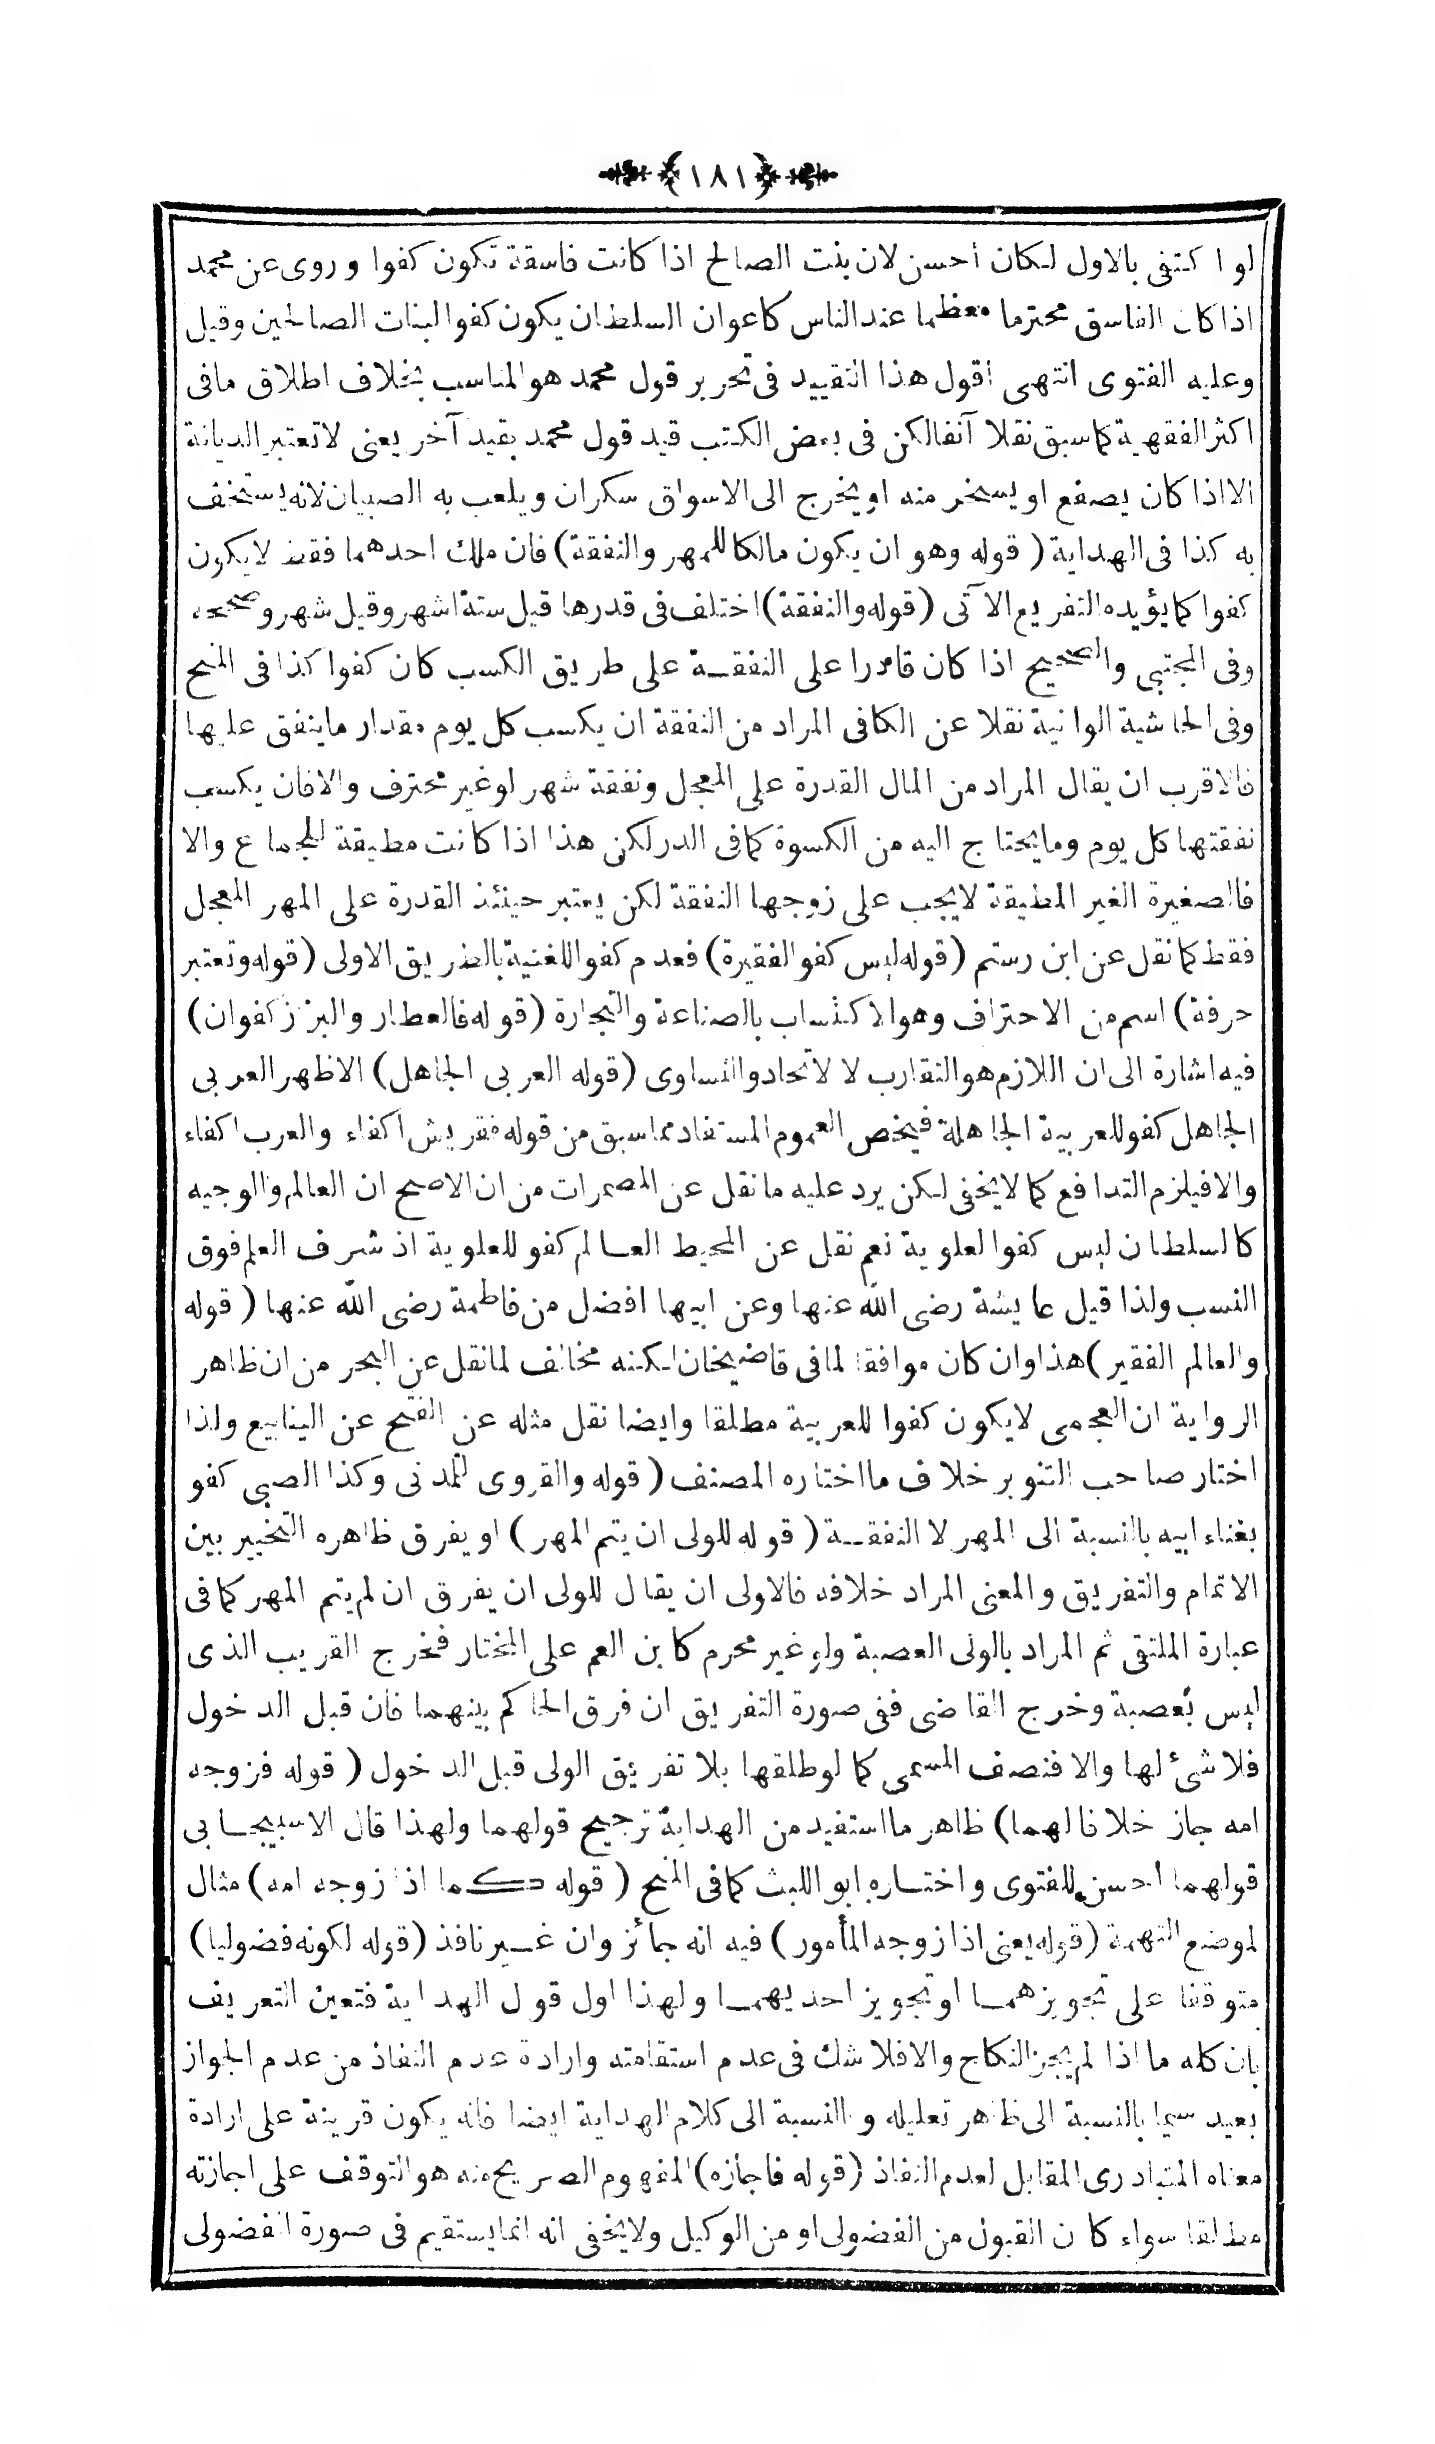 ١٨١
لو اكتفى بالاول لكان أحسن لان بنت الصالح اذا كانت فاسقة تكون كفوا وروى عن محمد
اذا كان الفاسق محترما معظما عند الناس كاعوان السلطان يكون كفوا لبنات الصالحين وقيل
وعليه الفتوى انتهى أقول هذا التقييد فى تحرير قول محمد هو المناسب بخلاف اطلاق مافى
اكثر الفقهية كما سبق نقلا آنفا لكن فى بعض الكتب قيد قول محمد بقيد آخر يعنى لا تعتبر الديانة
الا اذا كان يصفع او يسخر منه او يخرج الى الاسواق سكران ويلعب به الصبيان لانه يستخف
به كذا فى الهداية ( قوله وهو ان يكون مالكا للمهر والنفقة) فان ملك احدهما فقط لا يكون
كفوا كما يؤيده التفريع الآتى (قوله والنفقة) اختلف فى قدرها قيل ستة اشهر وقيل شهر وصححه
وفى المجتبى والصحيح اذا كان قادرا على النفقة على طريق الكسب كان كفوا كذا فى المنح
وفى الحاشية الوانية نقلا عن الكافى المراد من النفقة ان يكسب كل يوم مقدار ما ينفق عليها
فالاقرب ان يقال المراد من المال القدرة على المعجل ونفقة شهر لو غير محترف والا فان يكسب
نفقتها كل يوم وما يحتاج اليه من الكسوة كما فى الدر لكن هذا اذا كانت مطيقة للجماع والا
فالصغيرة الغير المطيقة لا يجب على زوجها النفقة لكن يعتبر حينئذ القدرة على المهر المعجل
فقط كما نقل عن ابن رستم (قوله ليس كفو الفقيرة) فعدم كفو اللغنية بالطريق الاولى (قوله وتعتبر
حرفة) اسم من الاحتراف وهو الاكتساب بالصناعة والتجارة (قوله فالعطار والبزاز كفوان)
فيه اشارة الى ان اللازم هو التقارب لا لاتحاد والتساوى (قوله العربى الجاهل) الاظهر العربى
الجاهل كفو للعربية الجاهلة فيخص العموم المستفاد مما سبق من قوله فقريش اكفاء والعرب اكفاء
والا فيلزم التدافع كما لا يخفى لكن يرد عليه ما نقل عن المضمرات من ان الاصح ان العالم والوجيه
كالسلطان ليس كفوا لعلوية نعم نقل عن المحيط العالم كفو للعلوية اذ شرف العلم فوق
النسب ولذا قيل عايشة رضى الله عنها وعن ابيها افضل من فاطمة رضى الله عنها ( قوله
والعالم الفقير ) هذا وان كان موافقا لما فى قاضيخان لكنه مخالف لما نقل عن البحر من ان ظاهر
الرواية ان العجمى لا يكون كفوا للعربية مطلقا وايضا نقل مثله عن الفتح عن الينابيع ولذا
اختار صاحب التنوير خلاف ما اختاره المصنف ( قوله والقروى للمدنى وكذا الصبى كفو
بغناء ابيه بالنسبة الى المهر لا النفقة ( قوله للولى ان يتم المهر ) او يفرق ظاهره التخيير بين
الاتمام والتفريق والمعنى المراد خلافه فالاولى ان يقال للولى ان يفرق ان لم يتم المهر كما فى
عبارة الملتقى ثم المراد بالولى العصبة ولو غير محرم كابن العم على المختار فخرج القريب الذى
ليس بعصبة وخرج القاضى ففى صورة التفريق ان فرق الحاكم بينهما فان قبل الدخول
فلا شئ لها والا فنصف المسمى كما لو طلقها بلا تفريق الولى قبل الدخول ( قوله فزوجه
امه جاز خلافا لهما) ظاهر ما استفيد من الهداية ترجيح قولهما ولهذا قال الاسبيجابى
قولهما أحسن للفتوى واختاره ابو الليث كما فى المنح ( قوله كما اذا زوجه امه) مثال
لموضع التهمة (قوله يعنى اذا زوجه المأمور) فيه انه جائز وان غير نافذ (قوله لكونه فضوليا)
متوقفا على تجويزهما او تجويز احديهما ولهذا اول قول الهداية فتعين التعريف
بان كله ما اذا لم يجز النكاح والا فلا شك فى عدم استقامته وارادة عدم النفاذ من عدم الجواز
بعيد سيما بالنسبة الى ظاهر تعليله والنسبة الى كلام الهداية ايضا فانه يكون قرينة على ارادة
معناه المتبادرى المقابل لعدم النفاذ (قوله فاجازه) المفهوم الصريح منه هو التوقف على اجازته
مطلقا سواء كان القبول من الفضولى او من الوكيل ولا يخفى انه انما يستقيم فى صورة الفضولى